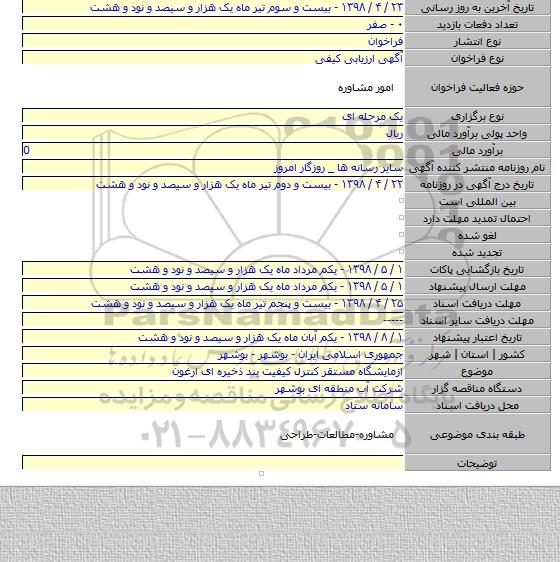 تاریخ آخرین به روز رسانی ۲۳ / ۴ / ۱۳۹۸ - بیست و سوم تیر ماه یک هزار و سیصد و نود و هشت
تعداد دفعات بازدید ۰ - صفر
نوع انتشار فراخوان
نوع فراخوان آگهی ارزیابی کیفی
حوزه فعالیت فراخوان امور مشاوره
نوع برگزاری یک مرحله ای
واحد پولی برآورد مالی ریال
برآورد مالی 0
نام روزنامه منتشر کننده آگهی سایر رسانه ها _ روزگار امروز
تاریخ درج آگهی در روزنامه ۲۲ / ۴ / ۱۳۹۸ - بیست و دوم تیر ماه یک هزار و سیصد و نود و هشت
بین المللی است
احتمال تمدید مهلت دارد
لغو شده
تجدید شده
تاریخ بازگشایی پاکات ۱ / ۵ / ۱۳۹۸ - یکم مرداد ماه یک هزار و سیصد و نود و هشت
مهلت ارسال پیشنهاد ۱ / ۵ / ۱۳۹۸ - یکم مرداد ماه یک هزار و سیصد و نود و هشت
مهلت دریافت اسناد ۲۵ / ۴ / ۱۳۹۸ - بیست و پنجم تیر ماه یک هزار و سیصد و نود و هشت
مهلت دریافت سایر اسناد -----
تاریخ اعتبار پیشنهاد ۱ / ۸ / ۱۳۹۸ - یکم آبان ماه یک هزار و سیصد و نود و هشت
کشور | استان | شهر جمهوری اسلامی ایران - بوشهر - بوشهر
موضوع آزمایشگاه مستقر کنترل کیفیت بند ذخیره ای ارغون
دستگاه مناقصه گزار شرکت آب منطقه ای بوشهر
محل دریافت اسناد سامانه ستاد
طبقه بندی موضوعی مشاوره-مطالعات-طراحی
توضیحات
ParsNamadData
پایگاه اطلاع رسانی مناقصه و مزایده
۰۲۱-۸۸۳۴۹۶۷۰-۵